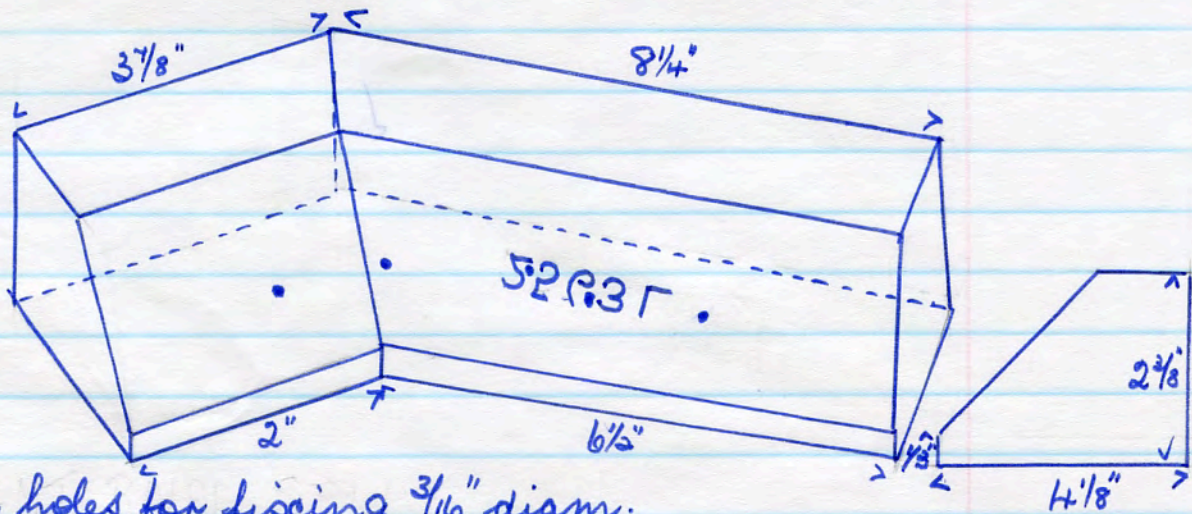 3⅞"
8¼"
5·2 P.3 Γ
2"
6½"
2⅜"
4⅛"
holes for fixing 3/16" diam.